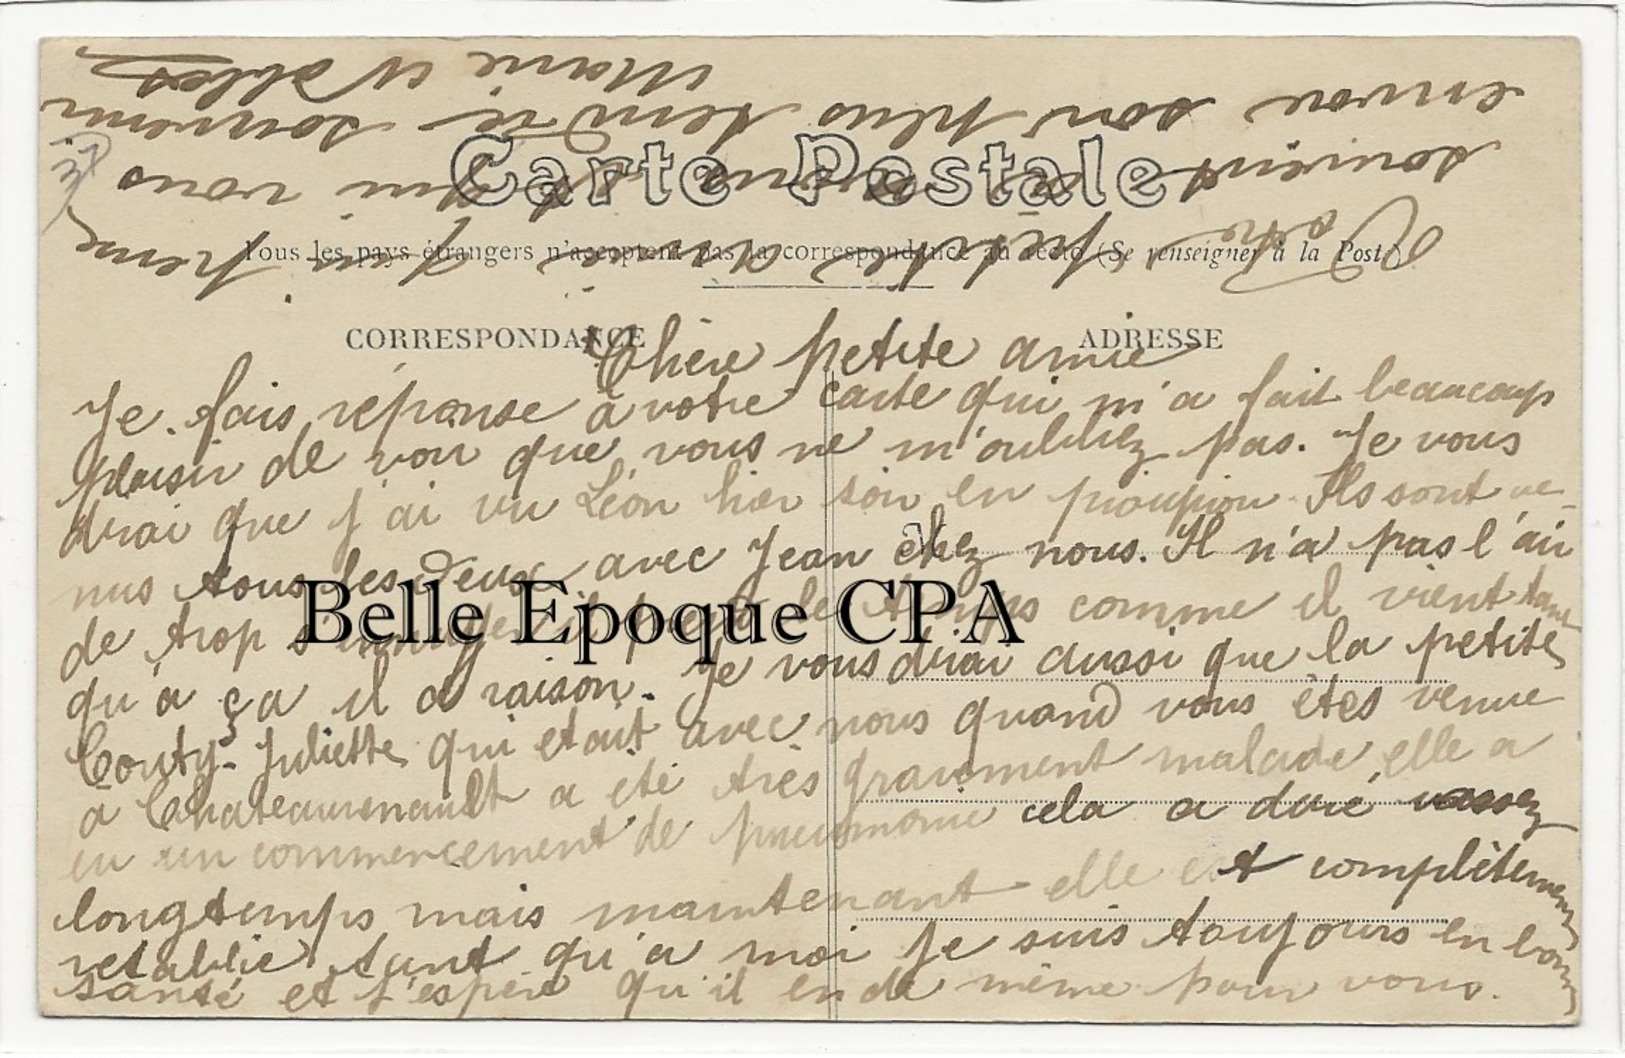 Carte Postale
Tous les pays étrangers n'acceptent pas la correspondance au recto (Se renseigner à la Poste)
CORRESPONDANCE
ADRESSE
Chère petite amie
Je fais réponse à votre carte qui m'a fait beaucoup
plaisir de voir que vous ne m'oubliez pas. Je vous
dirai que j'ai vu Léon hier soir en pioupiou. Ils sont ve-
nus tous les deux avec Jean chez nous. Il n'a pas l'air
de trop s'ennuyer il prend le temps comme il vient tant
qu'à ça il a raison. Je vous dirai aussi que la petite
Couty Juliette qui etait avec nous quand vous êtes venue
à Chateaurenault a eté très gravement malade elle a
eu un commencement de pneumonie cela a duré assez
longtemps mais maintenant elle est complètement
retablie tant qu'a moi je suis toujours en bonne
santé et j'espère qu'il en de même pour vous.
Votre petite amie qui pense
souvent à vous et qui vous
envoie son plus tendre souvenir
Marie
Belle Epoque CPA